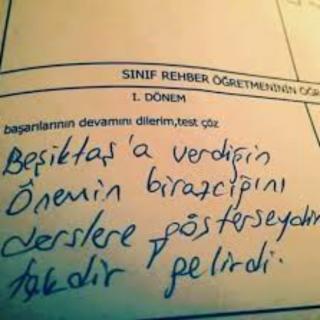 SINIF REHBER ÖĞRETMENİNİN ÖĞR
I. DÖNEM
başarılarının devamını dilerim,test çöz
Beşiktaş'a verdiğin
Önemin birazcığını
derslere gösterseydin
takdir gelirdi.